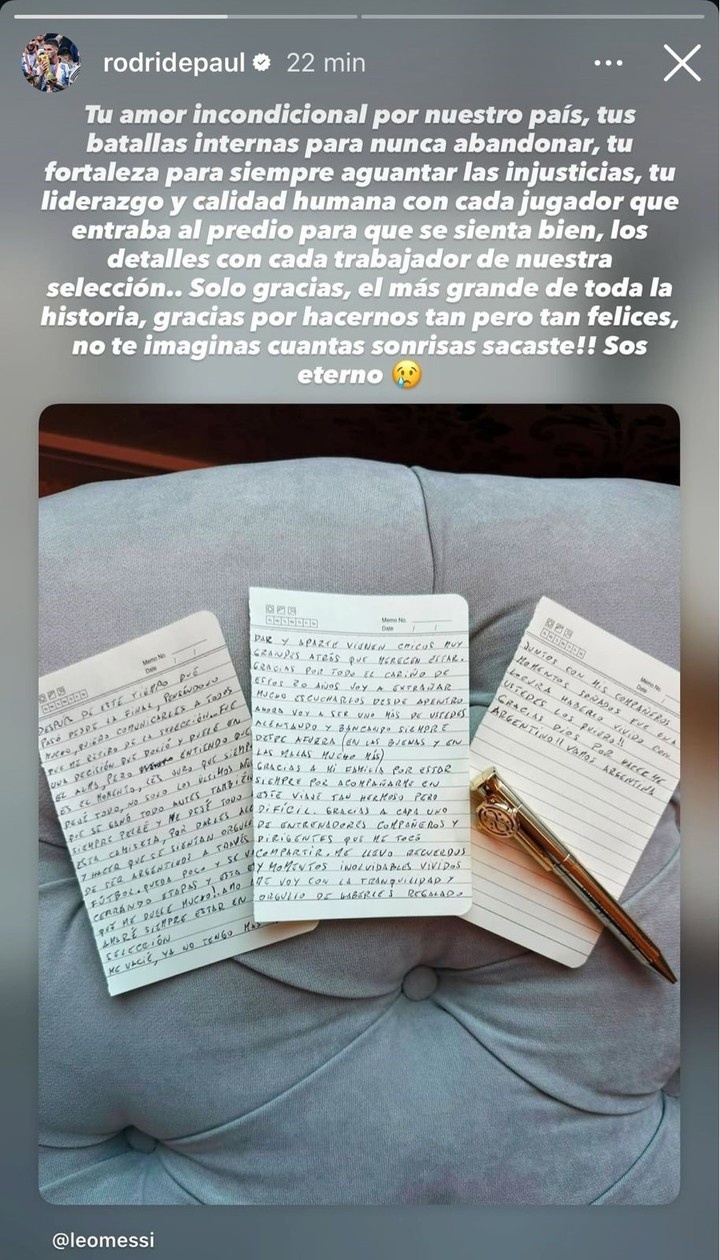 rodridepaul 22 min
Tu amor incondicional por nuestro país, tus
batallas internas para nunca abandonar, tu
fortaleza para siempre aguantar las injusticias, tu
liderazgo y calidad humana con cada jugador que
entraba al predio para que se sienta bien, los
detalles con cada trabajador de nuestra
selección.. Solo gracias, el más grande de toda la
historia, gracias por hacernos tan pero tan felices,
no te imaginas cuantas sonrisas sacaste!! Sos
eterno 😢
Memo No.
Date / /
DESPUÉS DE ESTE TIEMPO QUE
PASÓ DESDE LA FINAL, PENSÁNDOLO
MUCHO, QUIERO COMUNICARLES A TODOS
QUE ME RETIRO DE LA SELECCIÓN. FUE
UNA DECISIÓN QUE DOLIÓ Y DUELE EN
EL ALMA, PERO ENTIENDO QUE
ES EL MOMENTO. LES JURO QUE SIEMPRE
DEJÉ TODO, NO SOLO LOS ÚLTIMOS AÑOS
QUE SE GANÓ TODO ANTES TAMBIÉN
SIEMPRE PELEÉ Y ME DEJÉ TODO
ESTA CAMISETA, POR DARLES
Y HACER QUE SE SIENTAN
DE SER ARGENTINOS A TRAVÉS
FÚTBOL. QUEDA POCO Y SE V
CERRANDO ETAPAS Y ESTA E
QUE ME DUELE MUCHO! AMO
AMARÉ SIEMPRE ESTAR EN
SELECCIÓN
ME VACIÉ, YA NO TENGO MÁS
Memo No.
Date / /
DAR Y APARTE VIENEN CHICOS MUY
GRANDES ATRÁS QUE MERECEN ESTAR.
GRACIAS POR TODO EL CARIÑO DE
ESTOS 20 AÑOS VOY A EXTRAÑAR
MUCHO ESCUCHARLOS DESDE ADENTRO
AHORA VOY A SER UNO MÁS DE USTEDES
ALENTANDO Y BANCANDO SIEMPRE
DESDE AFUERA (EN LAS BUENAS Y EN
LAS MALAS MUCHO MÁS)
GRACIAS A MI FAMILIA POR ESTAR
SIEMPRE POR ACOMPAÑARME EN
ESTE VIAJE TAN HERMOSO PERO
DIFÍCIL. GRACIAS A CADA UNO
DE ENTRENADORES COMPAÑEROS Y
DIRIGENTES QUE ME TOCÓ
COMPARTIR, ME LLEVO RECUERDOS
Y MOMENTOS INOLVIDABLES VIVIDOS
ME VOY CON LA TRANQUILIDAD Y
ORGULLO DE HABERLES REGALADO
Memo No.
Date /
JUNTOS CON MIS COMPAÑEROS
MOMENTOS SOÑADOS Y FUE UNA
LOCURA HABERLO VIVIDO CON
USTEDES LOS QUIERO!!
GRACIAS DIOS POR HACERME
ARGENTINO!! VAMOS ARGENTINA
@leomessi